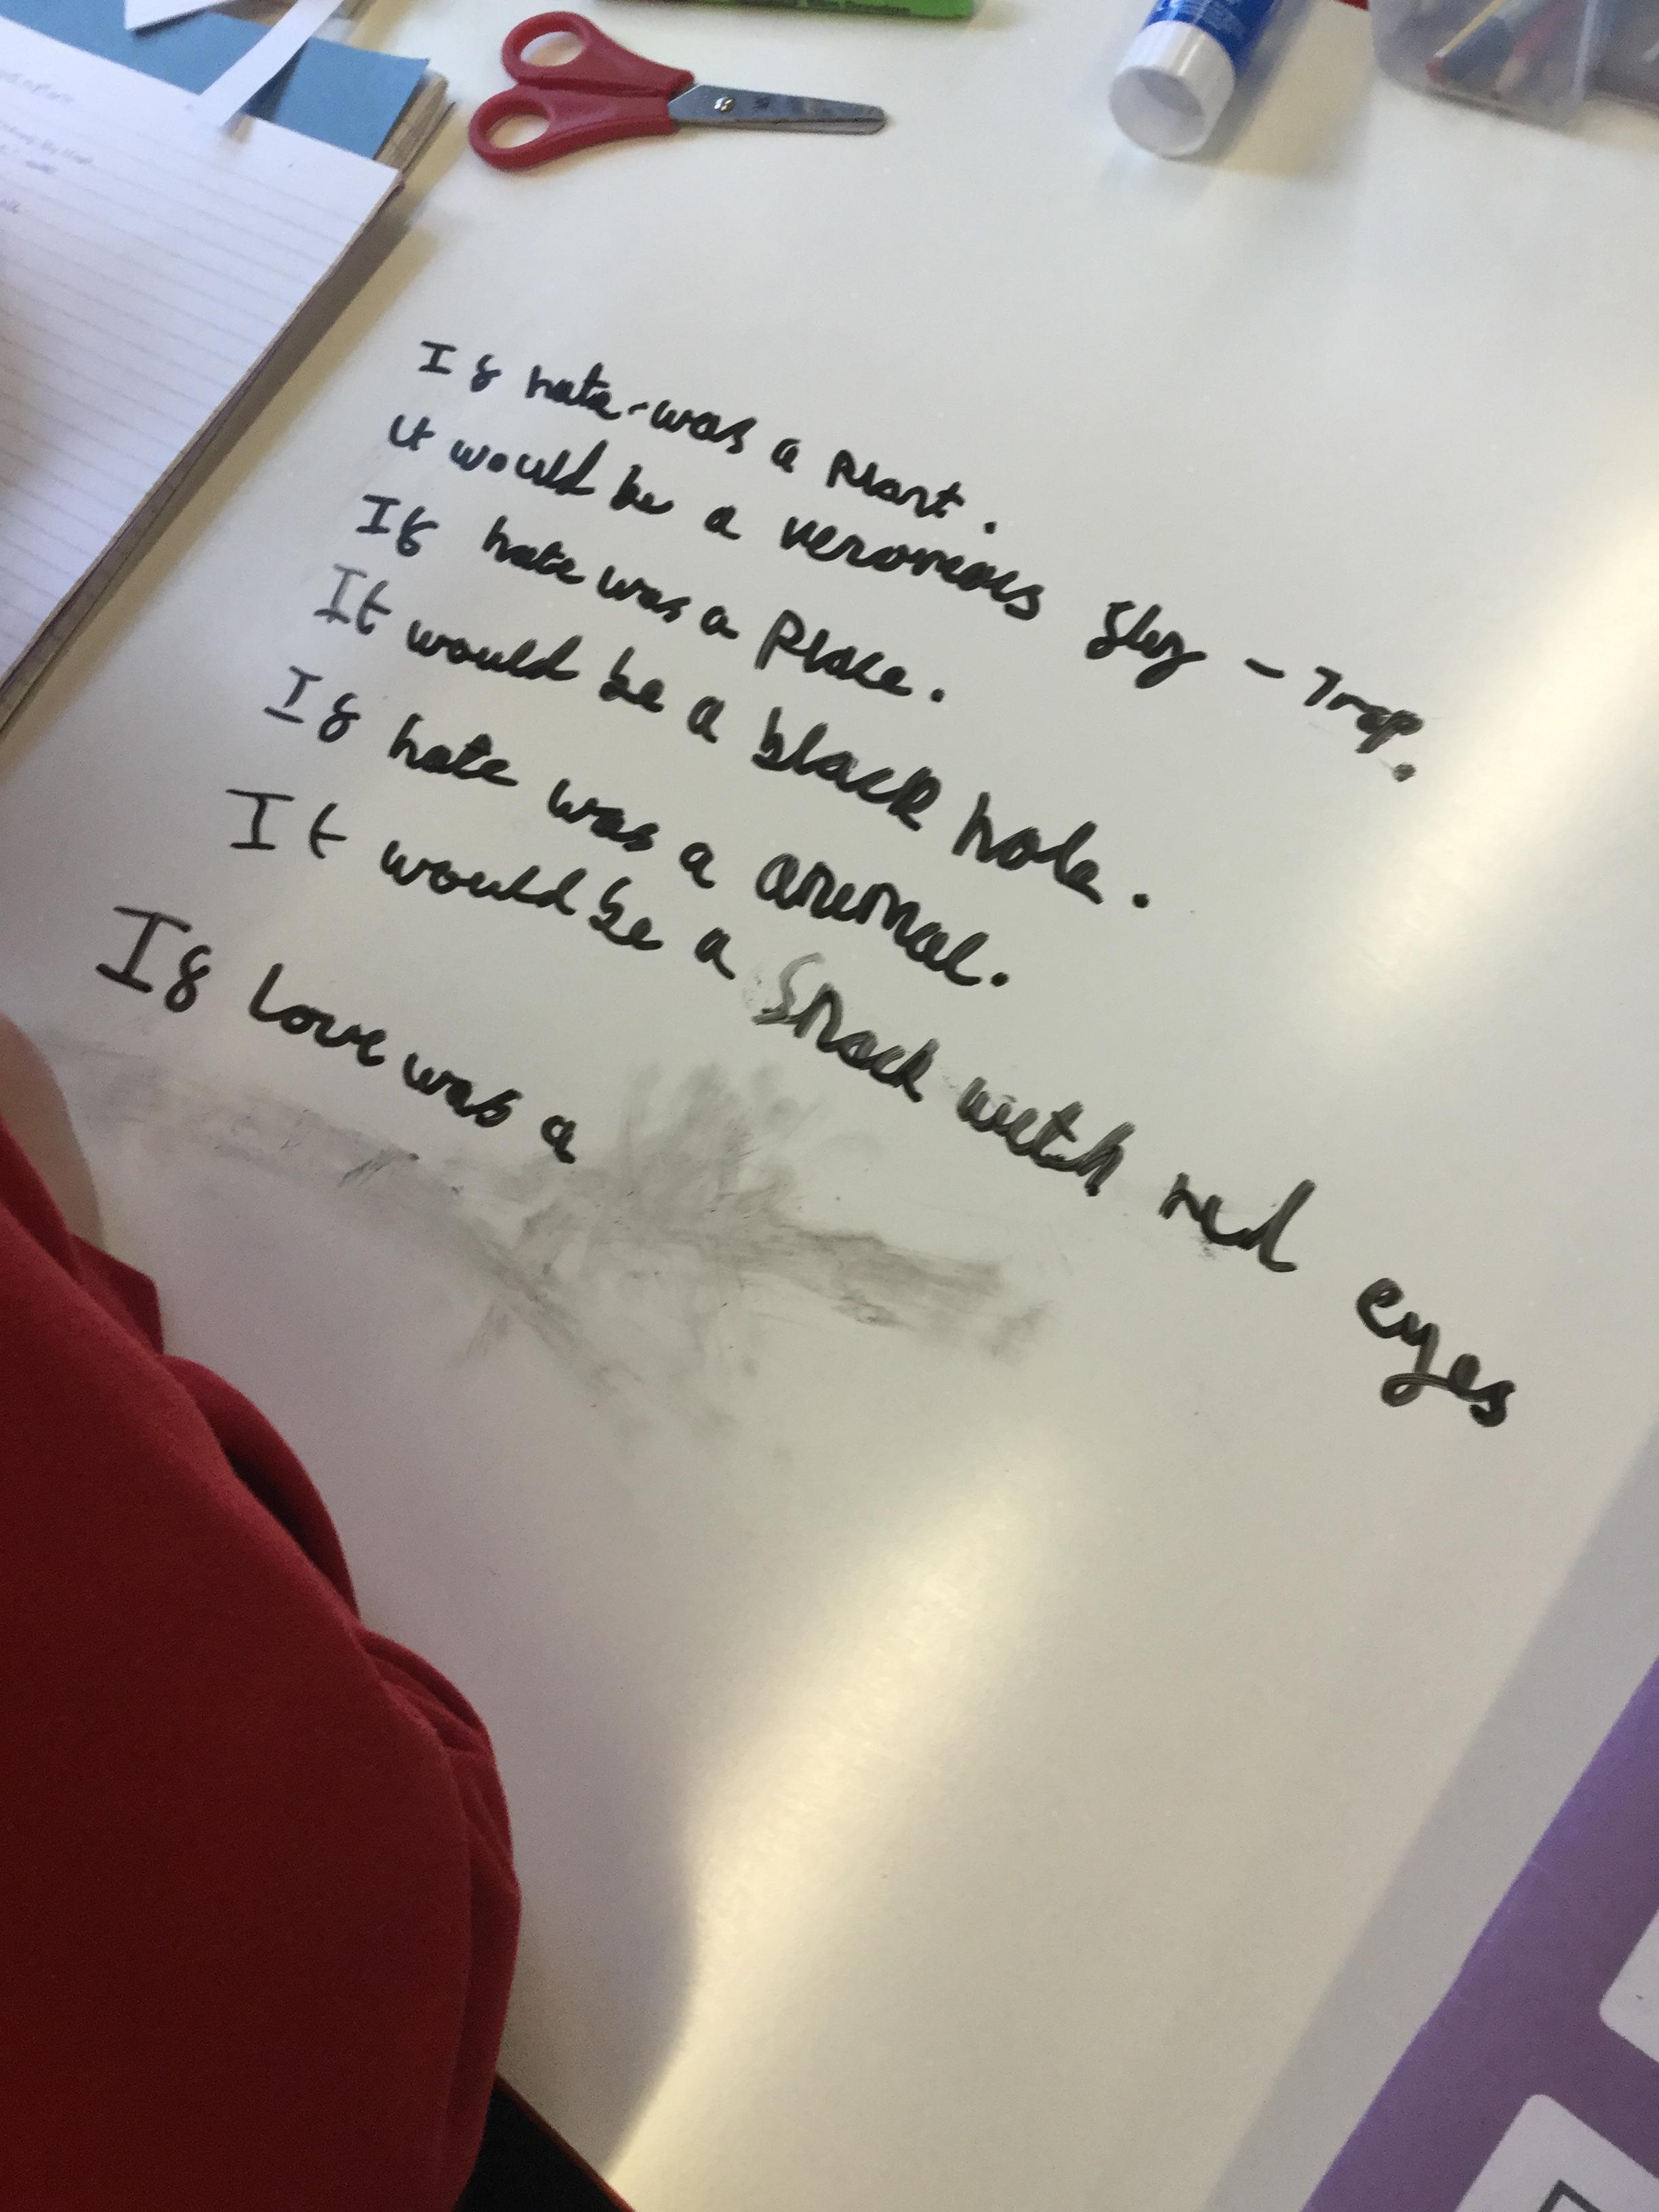 If hate-was a Plant.
it would be a venomous fly-Trap.
If hate was a Place.
It would be a black hole.
If hate was a animal.
It would be a Snack with red eyes
If Love was a